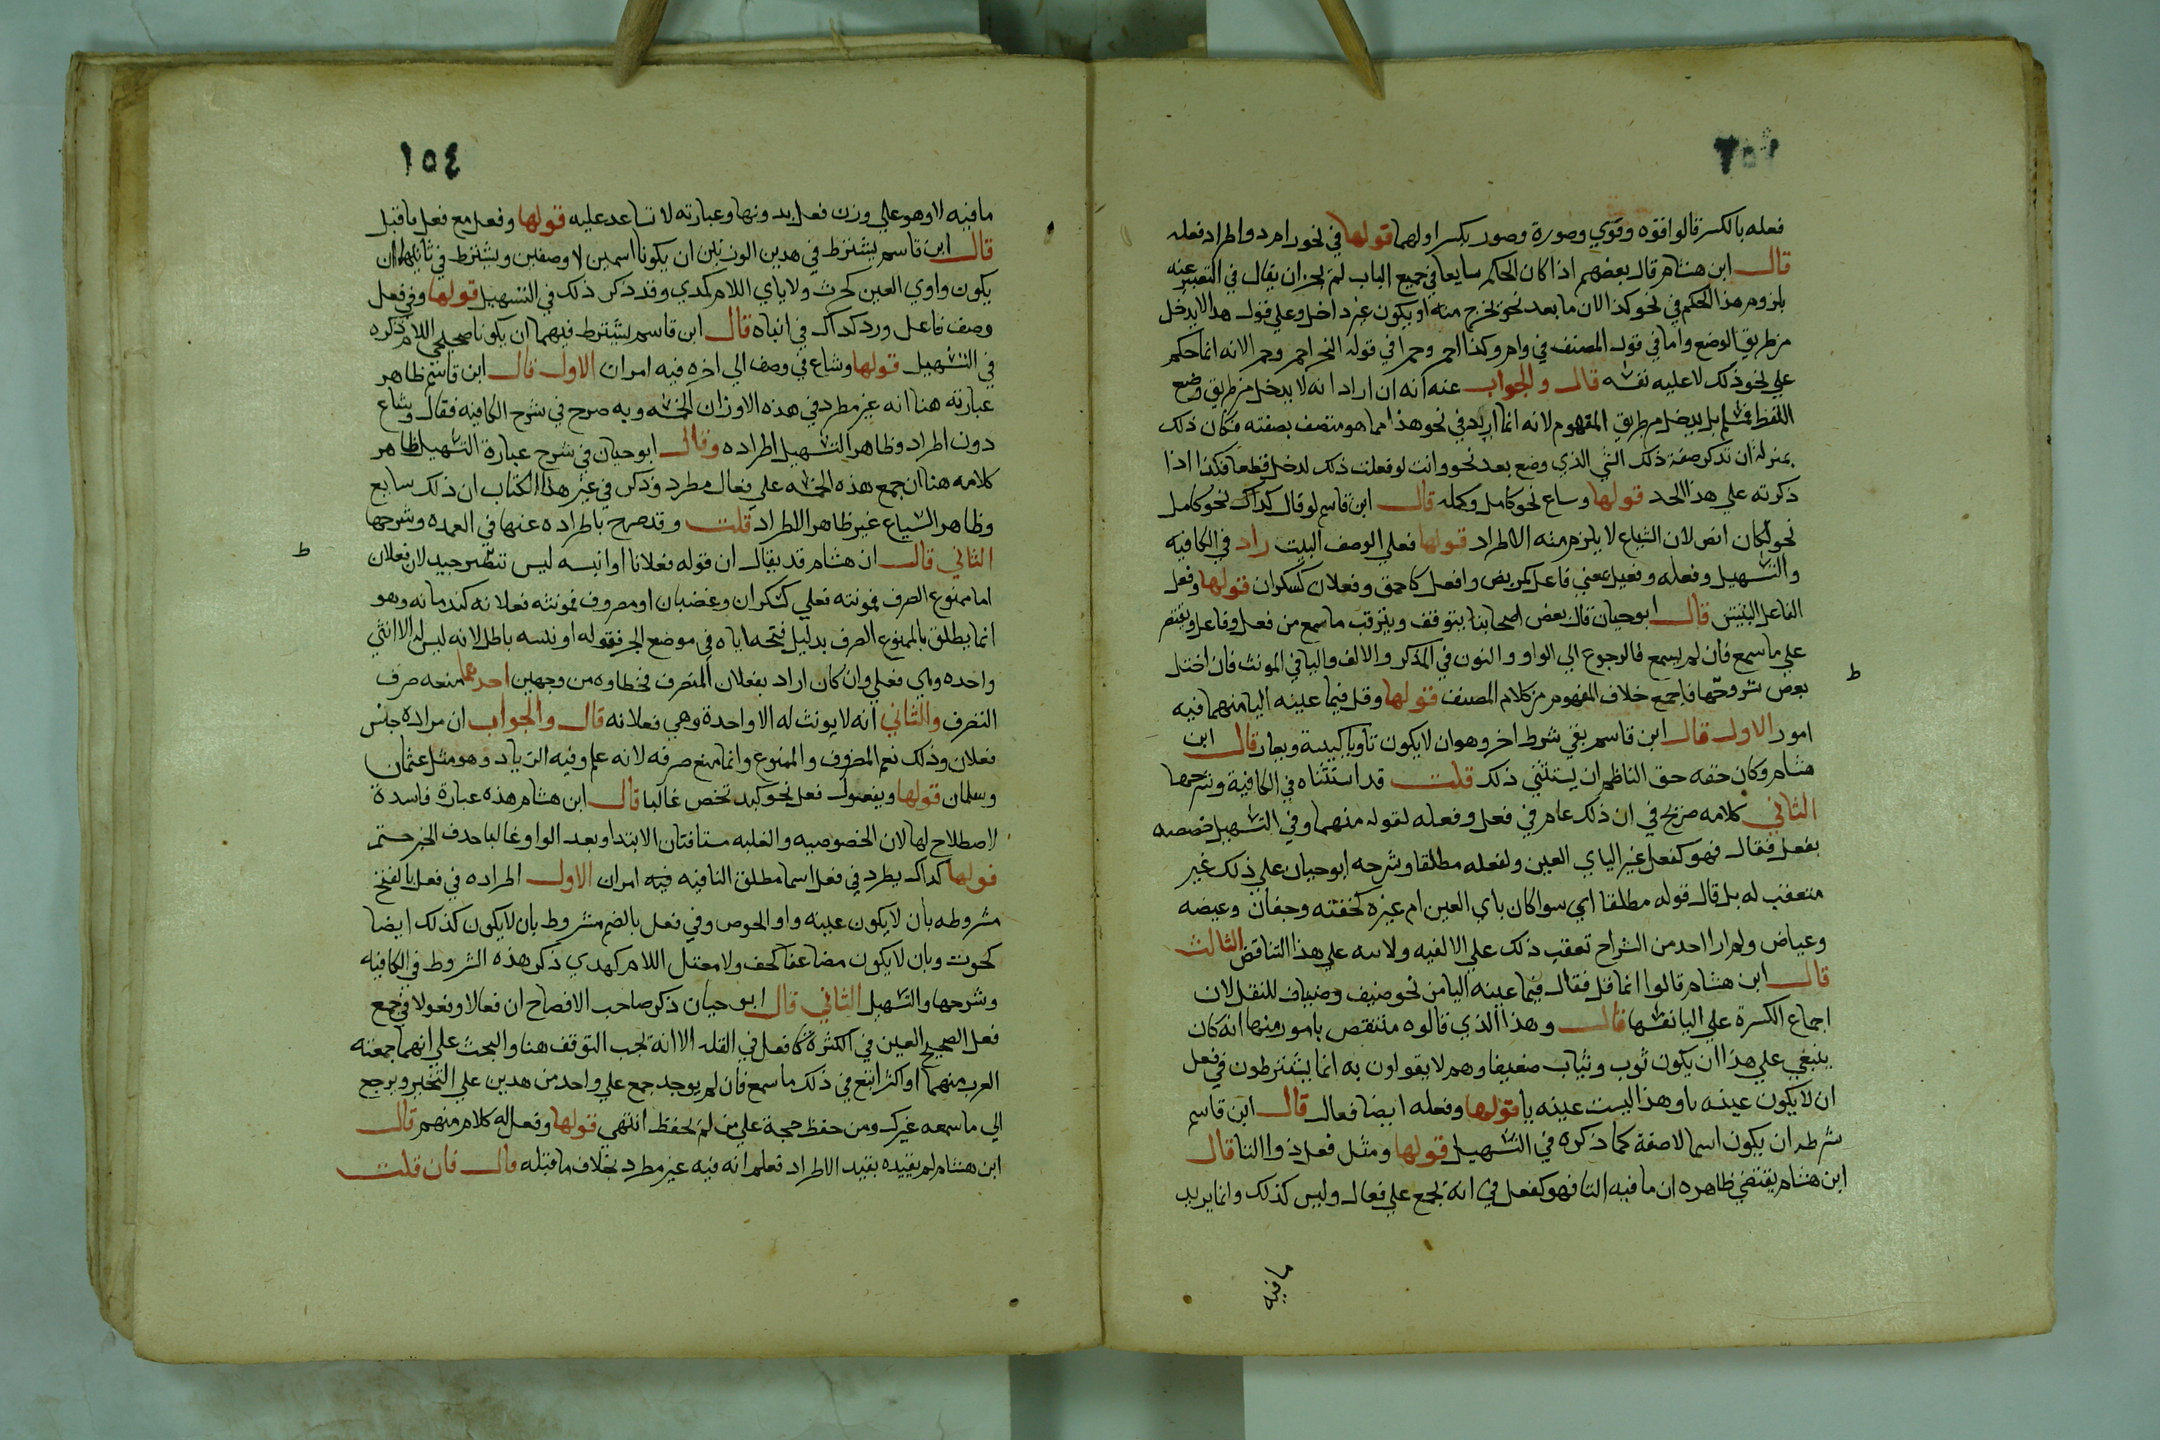 ١٥٣
فعله بالكسر قالوا قوه وقوي وصورة وصور بكسر اولهما قولها في نحو رام ذو اطراد فعله
قال ابن هشام قال بعضهم اذا كان الحكم سايعا في جميع الباب لم يجز ان يقال في التعبير عنه
يلزم هذا الحكم في نحو كذا لان ما بعد نحو يخرج منه او يكون غير داخل وعلي قوله هذا لا يدخل
من طريق الوضع واما في قول المصنف في وامر وكذا احمر وحمرا في قوله النحو احمر وحمر الانه انما حكم
علي نحو ذلك لا عليه نفسه قال والجواب عنه انه ان اراد انه لا يدخل من طريق وضع
اللفظ فمسلم بل يدخل من طريق المفهوم لانه انما اريد في نحو هذا مما هو متصف بصفته فكان ذلك
بمنزلة ان تذكر صفة ذلك الشي الذي وضع بعد نحو وانت لو فعلت ذلك لدخل قطعا فكذا اذا
ذكرته علي هذا الحد قولها وساع نحو كامل وكمله قال ابن قاسم لو قال كذاك نحو كامل
نحو لكان انص لان الشياع لا يلزم منه الاطراد قولها فعلي لوصف البيت زاد في الكافيه
والتسهيل وفعله وفعيل بمعني فاعل كمريض وافعل كاحمق وفعلان كسكران قولها وفعل
الفاعل البيتين قال ابو حيان قال بعض اصحابنا يتوقف ويترقب ما سمع من فعل وفاعل ويقتصر
علي ما سمع فان لم يسمع فالرجوع الي الواو والنون في المذكر والالف واليا في المونث فان اختل
بعض شروحها فاجمع خلاف المفهوم من كلام المصنف قولها وقل فيما عينه اليا منهما فيه
امور الاول قال ابن قاسم بقي شرط اخر وهو ان لا يكون تاويا كبيبة ويعار قال ابن
هشام وكان حقه حق الناظم ان يستثني ذلك قلت قد استثناه في الكافية وشرحها
الثاني كلامه صريح في ان ذلك عام في فعل وفعله لقوله منهما وفي التسهيل خصصه
بفعل فقال فهو كفعل غير الياي العين ولفعله مطلقا وشرحه ابو حيان علي ذلك غير
متعقب له بل قال قوله مطلقا اي سوا كان ياي العين ام غيره كجفنه وجفان وعيضه
وعياض ولم ار احد من الشراح تعقب ذلك علي الالفيه ولا نبه علي هذا التناقض الثالث
قال ابن هشام قالوا انما قل فقال فيما عينه اليا من نحو ضيف وضياف للنقل لان
اجماع الكسرة علي اليا نفسها قال وهذا الذي قالوه منتقص بامور منها انه كان
ينبغي علي هذا ان يكون ثوب وثياب ضعيفا وهم لا يقولون به انما يشترطون في فعل
ان لا يكون عينه يا وهذا ليست عينه يا قولها وفعله ايضا فعال قال ابن قاسم
شرطه ان يكون اسما لا صفة كما ذكره في التسهيل قولها ومثل فعل ذو التا قال
ابن هشام يقتضي ظاهره ان ما فيه التا فهو كفعل في انه يجمع علي فعال وليس كذلك وانما يريد
ما فيه
ط
١٥٤
ما فيه لا وهو علي وزن فعل بدونها وعبارته لا تساعد عليه قولها وفعل مع فعل فاقبل
قال ابن قاسم يشترط في هدين الوزنين ان يكونا اسمين لا وصفين ويشترط في ثانيهما ان
يكون واوي العين كحرث ولا ياي اللام كمدي وقد ذكر ذلك في التسهيل قولها وفي فعل
وصف فاعل ورد كذاك في انثاه قال ابن قاسم يشترط فيهما ان يكونا صحيحي اللام ذكره
في التسهيل قولها وشاع في وصف الي اخره فيه امران الاول قال ابن قاسم ظاهر
عبارته هنا انه غير مطرد في هذه الاوزان الخمسه وبه صرح في شرح الكافيه فقال وشاع
دون اطراد وظاهر التسهيل اطراده وقال ابو حيان في شرح عبارة التسهيل ظاهر
كلامه هنا ان جمع هذه الخمسه علي فعال مطرد وذكر في غير هذا الكتاب ان ذلك سايع
وظاهر الشياع غير ظاهر الاطراد قلت وقد صرح باطراده عنها في العمده وشرحها
الثاني قال ابن هشام قد يقال ان قوله فعلانا او انثييه ليس تنظير جيد لان فعلان
اما ممنوع الصرف فمونثه فعلي كسكران وغضبان او مصروف فمونثه فعلانه كندمانه وهو
انما يطلق بالممنوع الصرف بدليل فتحه اياه في موضع الجر فقوله او انثييه باطل لانه ليس له الا انثي
واحده وهي فعلي وان كان اراد بفعلان المنصرف فخطاوه من وجهين احدهما منعه صرف
المنصرف والثاني انه لا يونث له الا واحدة وهي فعلانه قال والجواب ان مراده جنس
فعلان وذلك نعم المصروف والممنوع وانما منع صرفه لانه علم وفيه الزياد وهو مثل عثمان
وسلمان قولها وبفعول فعل نحو كبد تخص غالبا قال ابن هشام هذه عبارة فاسدة
لاصطلاح لها لان الخصوصيه والغلبه متنافتان الابتدا وبعد الواو غالبا حدف الخبر حتم
قولها كذاك يطرد في فعل اسما مطلق الفا فيه امران الاول اطراده في فعل بالفتح
مشروطه بان لا يكون عينه واو الحوض وفي فعل بالضم مشروط بان لا يكون كذلك ايضا
كحوت وبان لا يكون مضاعفا كخف ولا معتل اللام كهدي ذكر هذه الشروط في الكافيه
وشرحها والتسهيل الثاني قال ابو حيان ذكر صاحب الافصاح ان فعالا وفعولا في جمع
فعل الصحيح العين في الكثرة كافعل في القله الا انه يجب التوقف هنا والبحث علي انهما جمعته
العرب منهما او اكثر اتبع في ذلك ما سمع فان لم يوجد جمع علي واحد من هدين علي التخير ويرجع
الي ما سمعه غيرك ومن حفظ حجة علي من لم يحفظ انتهي قولها وفعال له كلام منهم قال
ابن هشام لم يقيده بقيد الاطراد فعلم انه فيه غير مطرد بخلاف ما قبله قال فان قلت
ط